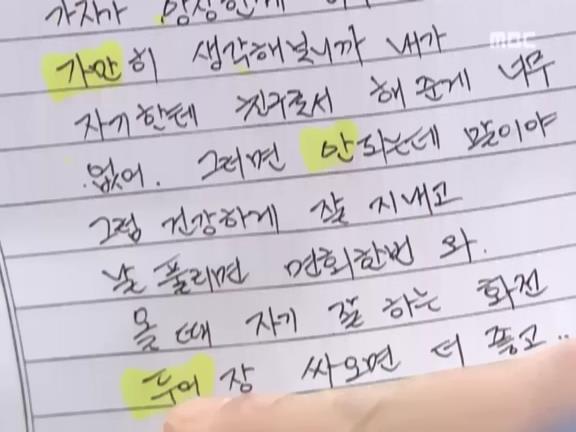 가자가 앙상한게
MBC
가만히 생각해보니까 내가
자기한테 친구로서 해 준게 너무
없어. 그러면 안되는데 말이야
그럼 건강하게 잘 지내고
날 풀리면 면회한번 와.
올 때 자기 잘 하는 화전
두어 장 싸오면 더 좋고..